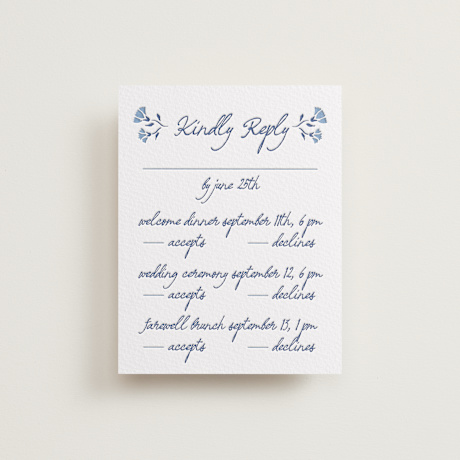 Kindly Reply
by june 25th
welcome dinner september 11th, 6 pm
accepts declines
wedding ceremony september 12, 6 pm
accepts declines
farewell brunch september 13, 1 pm
accepts declines